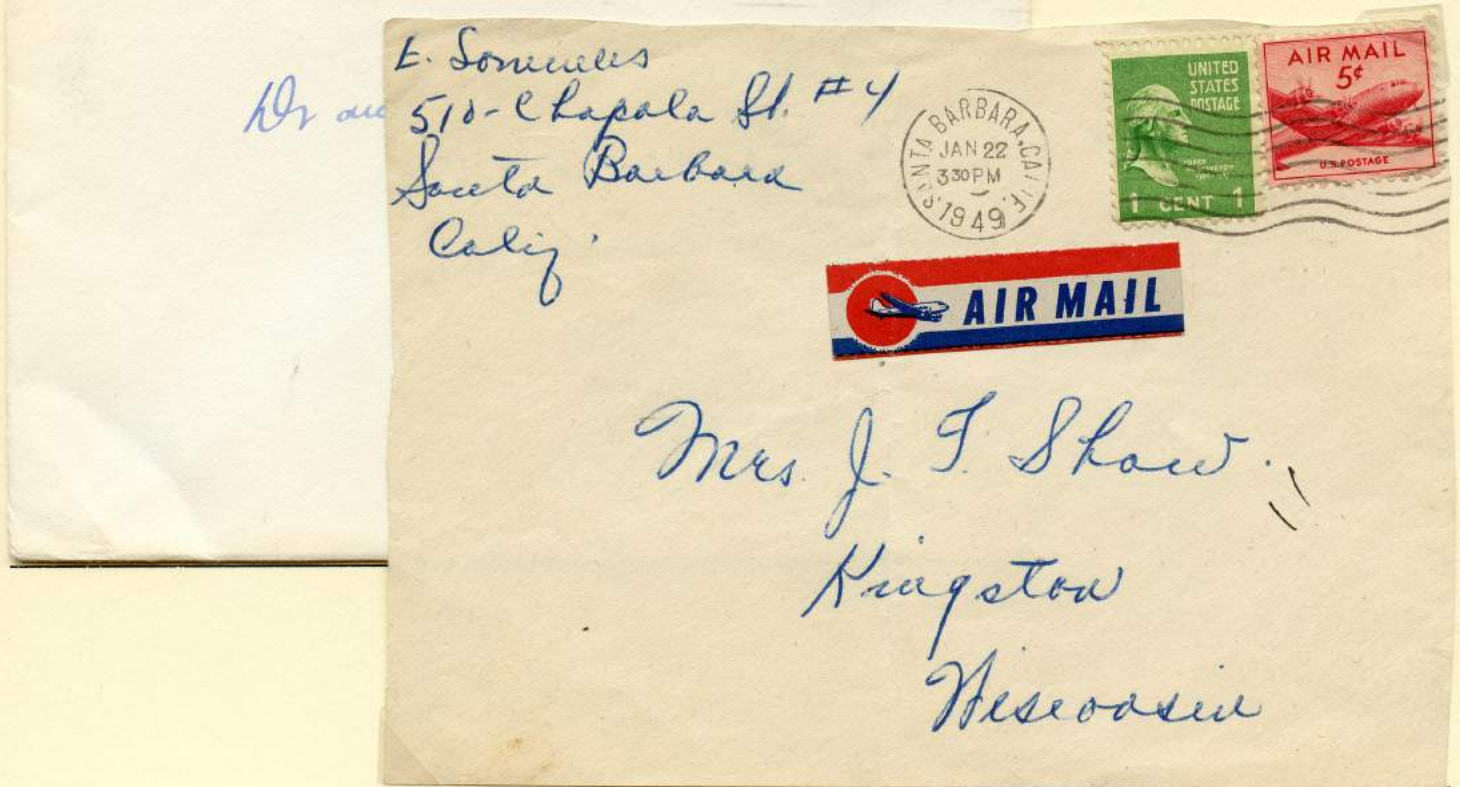 E. Sommers
510 - Chapala St. #4
Santa Barbara
Calif.
Dr
SANTA BARBARA, CALIF.
JAN 22
3 30 PM
1949
UNITED
STATES
POSTAGE
1 CENT 1
AIR MAIL
5¢
U.S. POSTAGE
AIR MAIL
Mrs. J. T. Shaw.
Kingston
Wisconsin